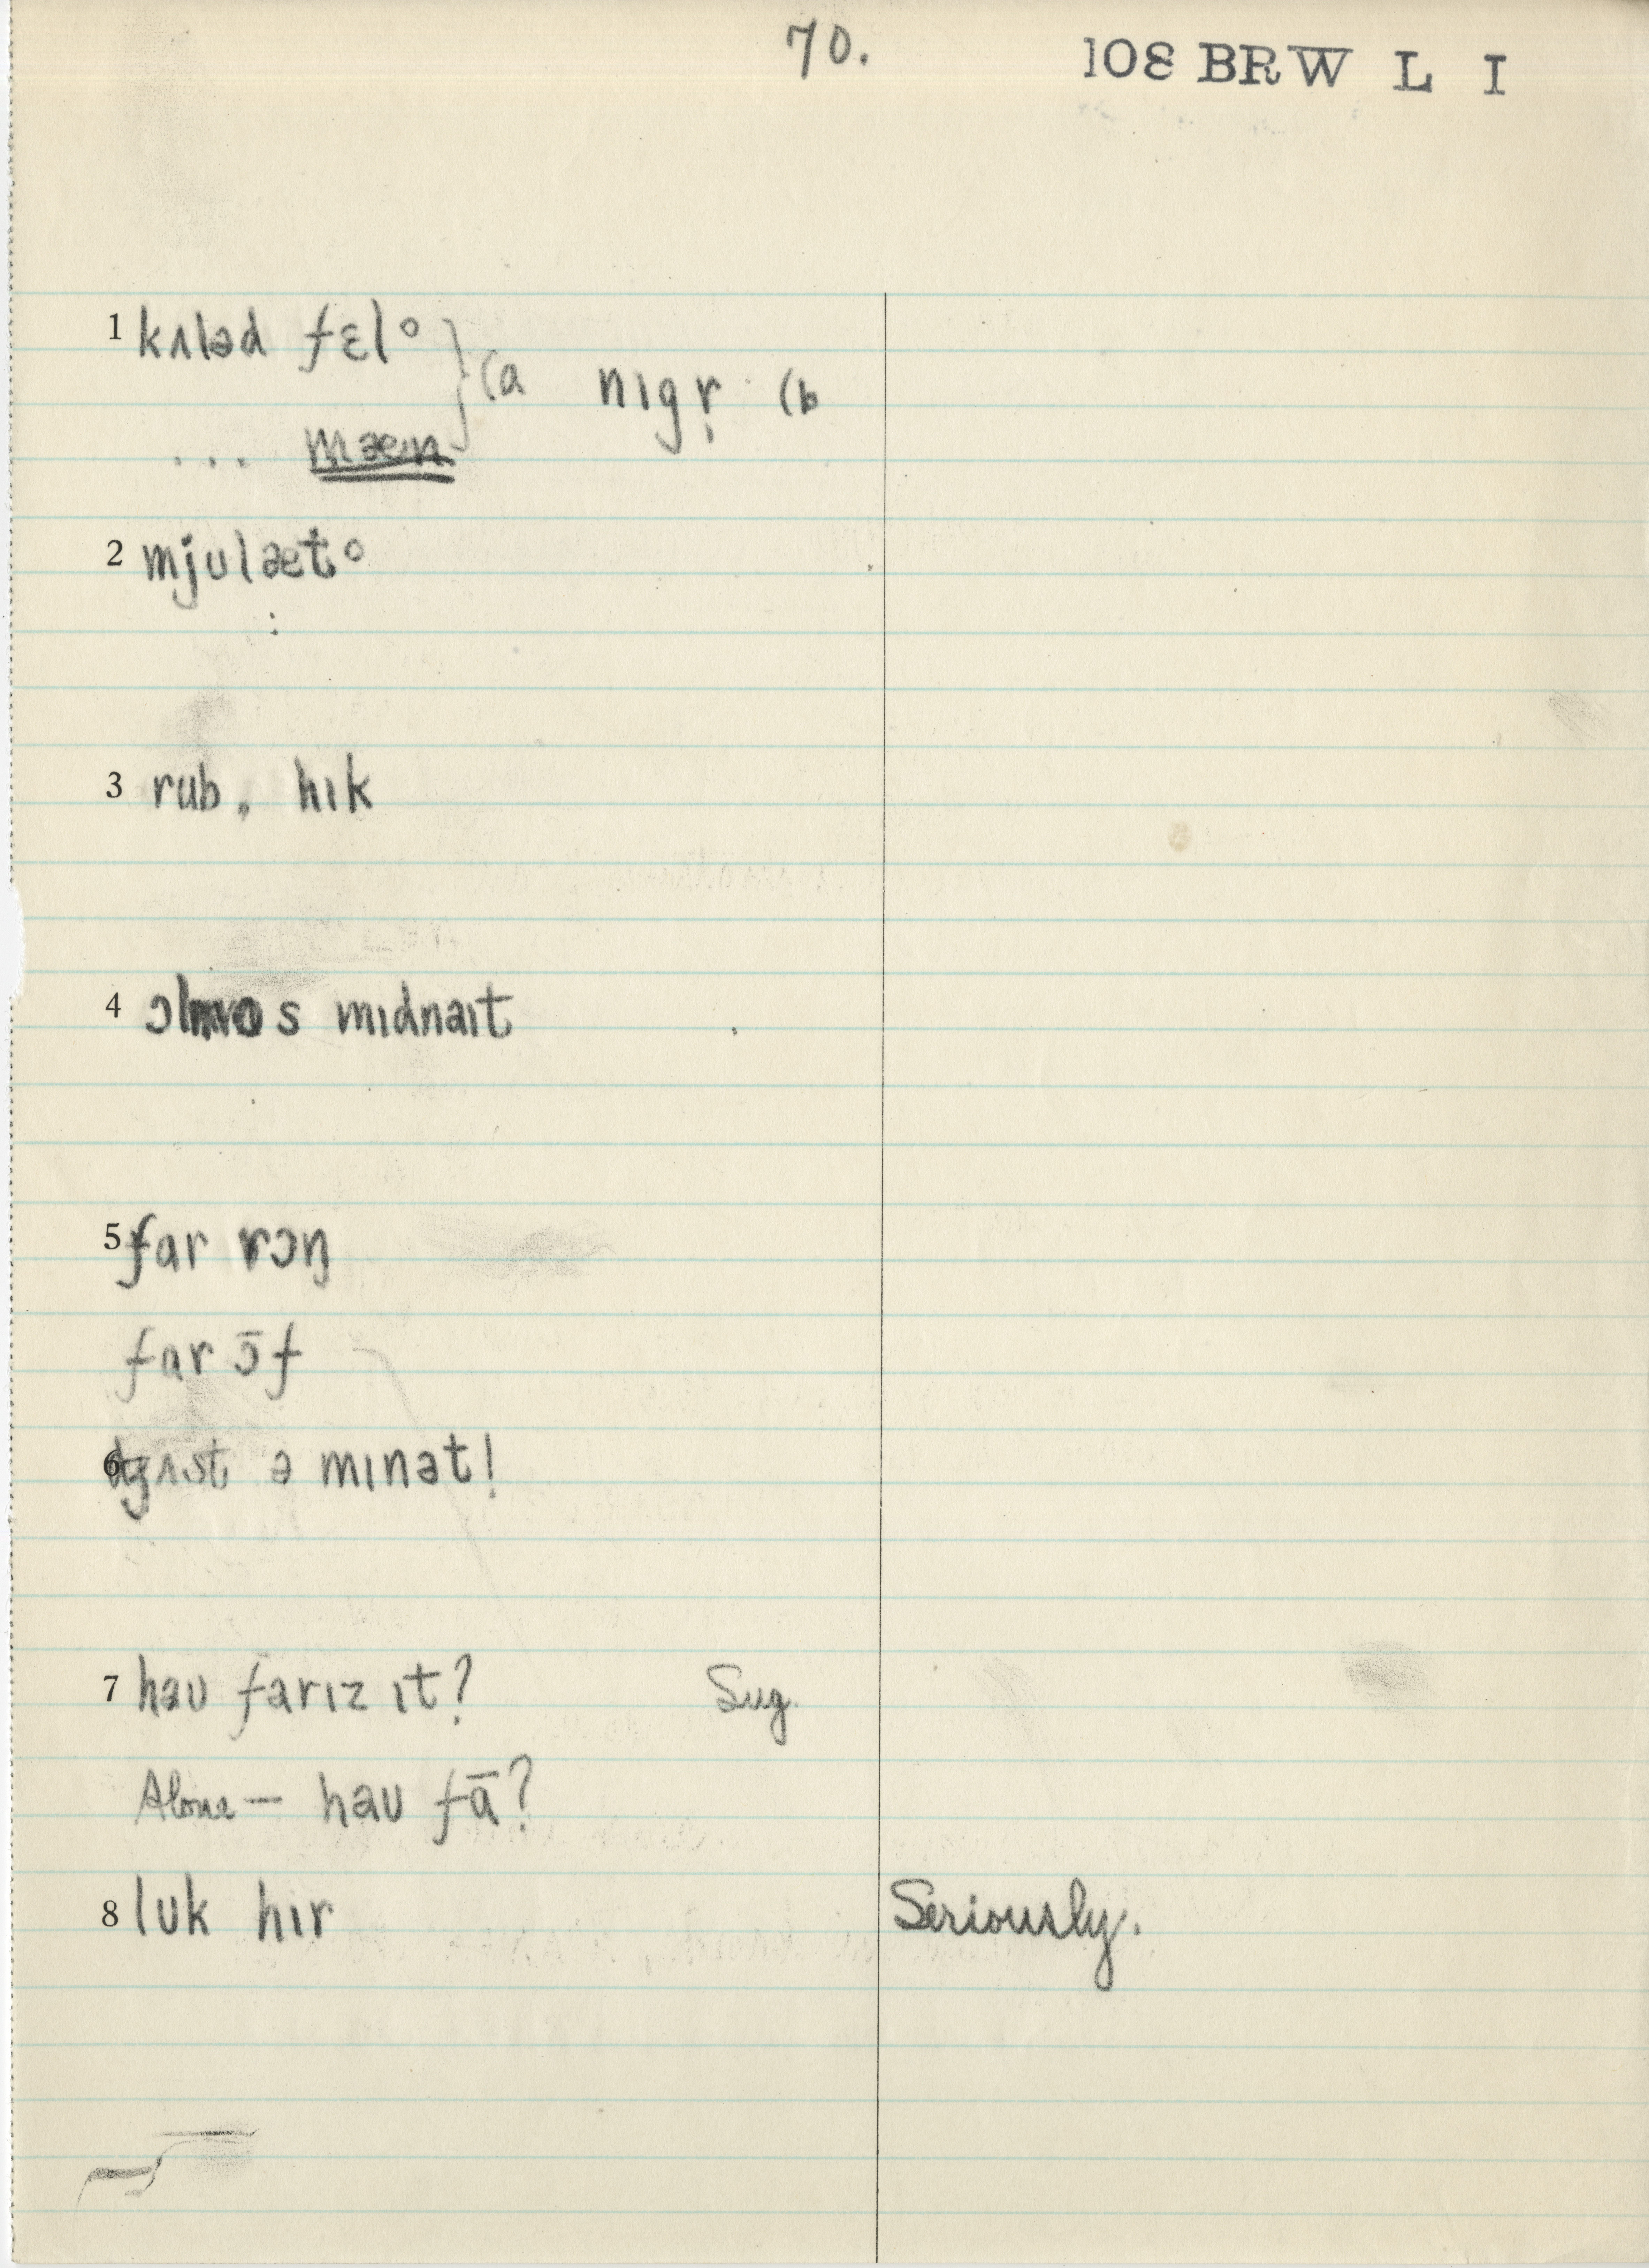 70. 108 BRW L I
1 kʌləd fɛlo } (a nɪgr̩ (b
... mæn
2 mjulæto
3 rub, hɪk
4 ɔlmos mɪdnaɪt
5 far rɔŋ
far ɔ̄f
6 dʒʌst ə mɪnət!
7 haʊ farɪz ɪt? Sug.
Alone — haʊ fɑ̄?
8 lʊk hɪr Seriously.